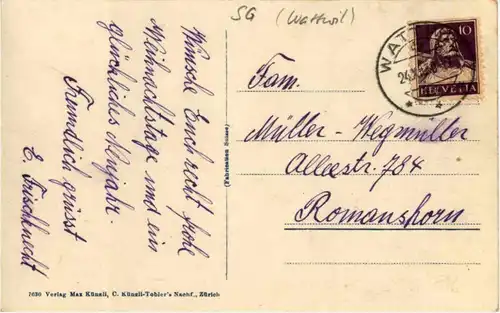 SG (Wattwil)
WAT
24.
10
HELVETIA
Wünsche Euch recht frohe
Weihnachtstage und ein
glückliches Neujahr
Freundlich grüsst
E. Frischknecht
(Fabrication Suisse)
Fam.
Müller-Wegmüller
Alleestr. 784
Romanshorn
7630 Verlag Max Künzli, C. Künzli-Tobler's Nachf., Zürich